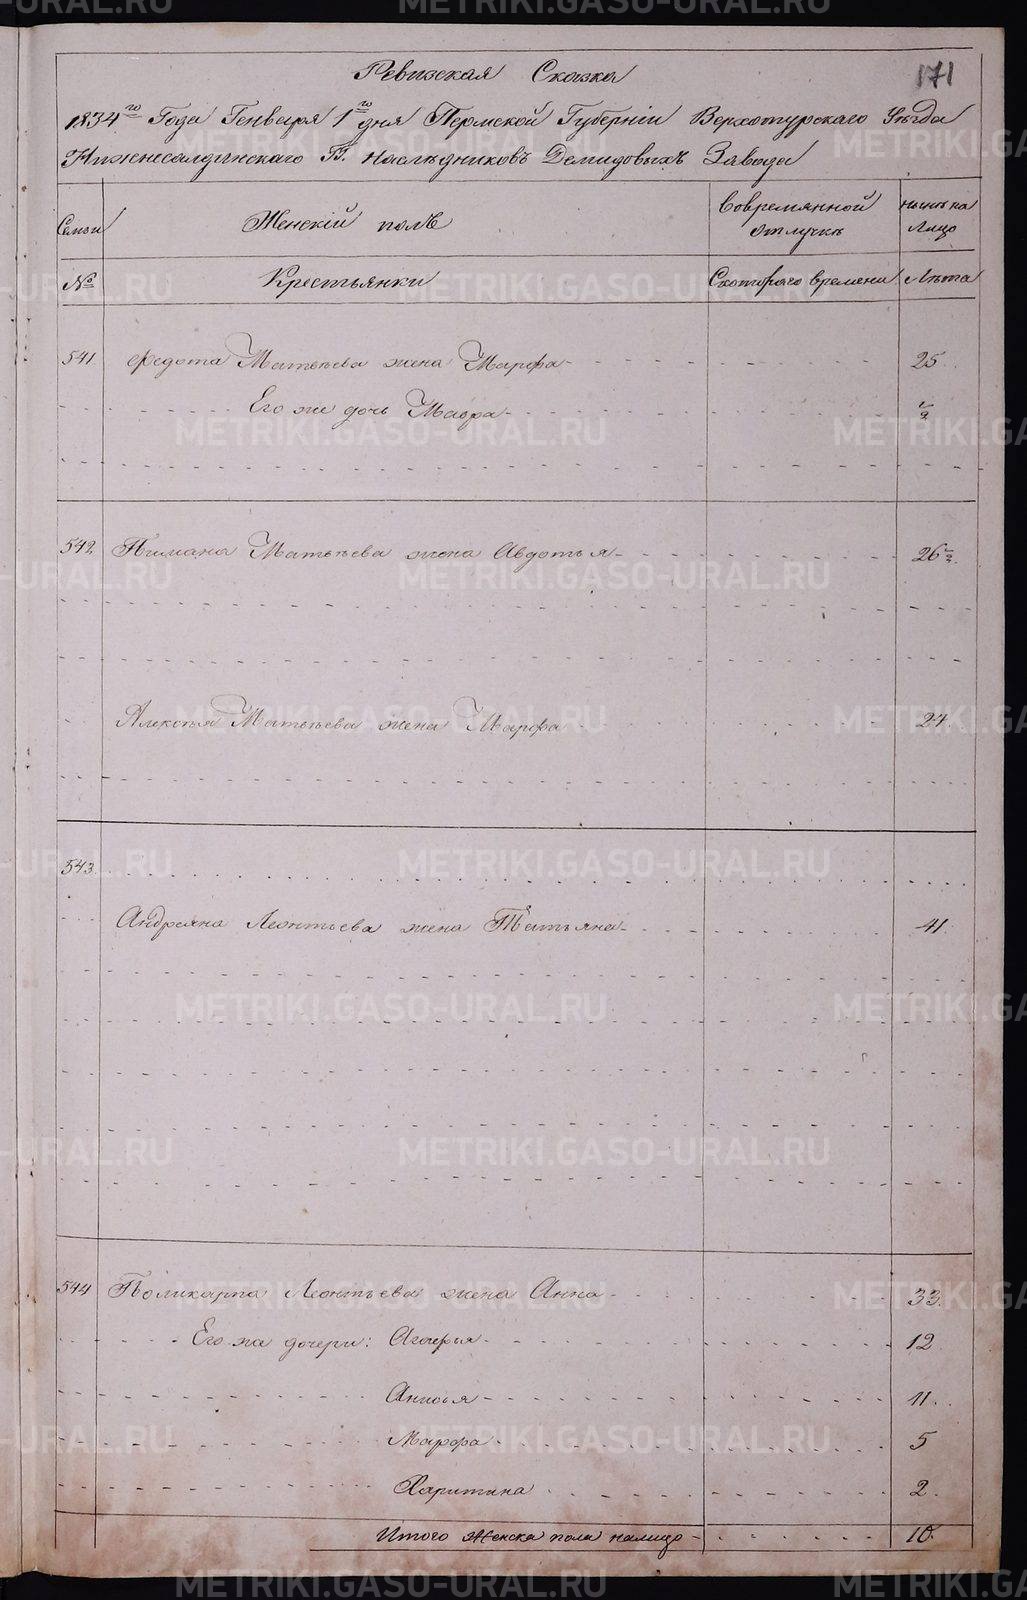 171
Ревизская Сказка
1834го Года Генваря 1го дня Пермской Губерніи Верхотурскаго Уѣзда
Нижнесалдинскаго Гг. наслѣдниковъ Демидовыхъ Завода
Семьи
Женскій полъ
вовремянной отлучкѣ
нынѣ на Лицо
№
Крестьянки
Скотораго времени
Лѣта
541 Федота Матвѣева жена Марфа 25
Его же дочь Мавра 1/2
542 Пимана Матвѣева жена Авдотья 26 1/2
Алексѣя Матвѣева жена Марфа 24
543
Андреяна Леонтьева жена Татьяна 41
544 Поликарпа Леонтьева жена Анна 33
Его же дочери: Агафья 12
Анисья 11
Марфа 5
Харитина 2
Итого Женска пола налицо 10
METRIKI.GASO-URAL.RU